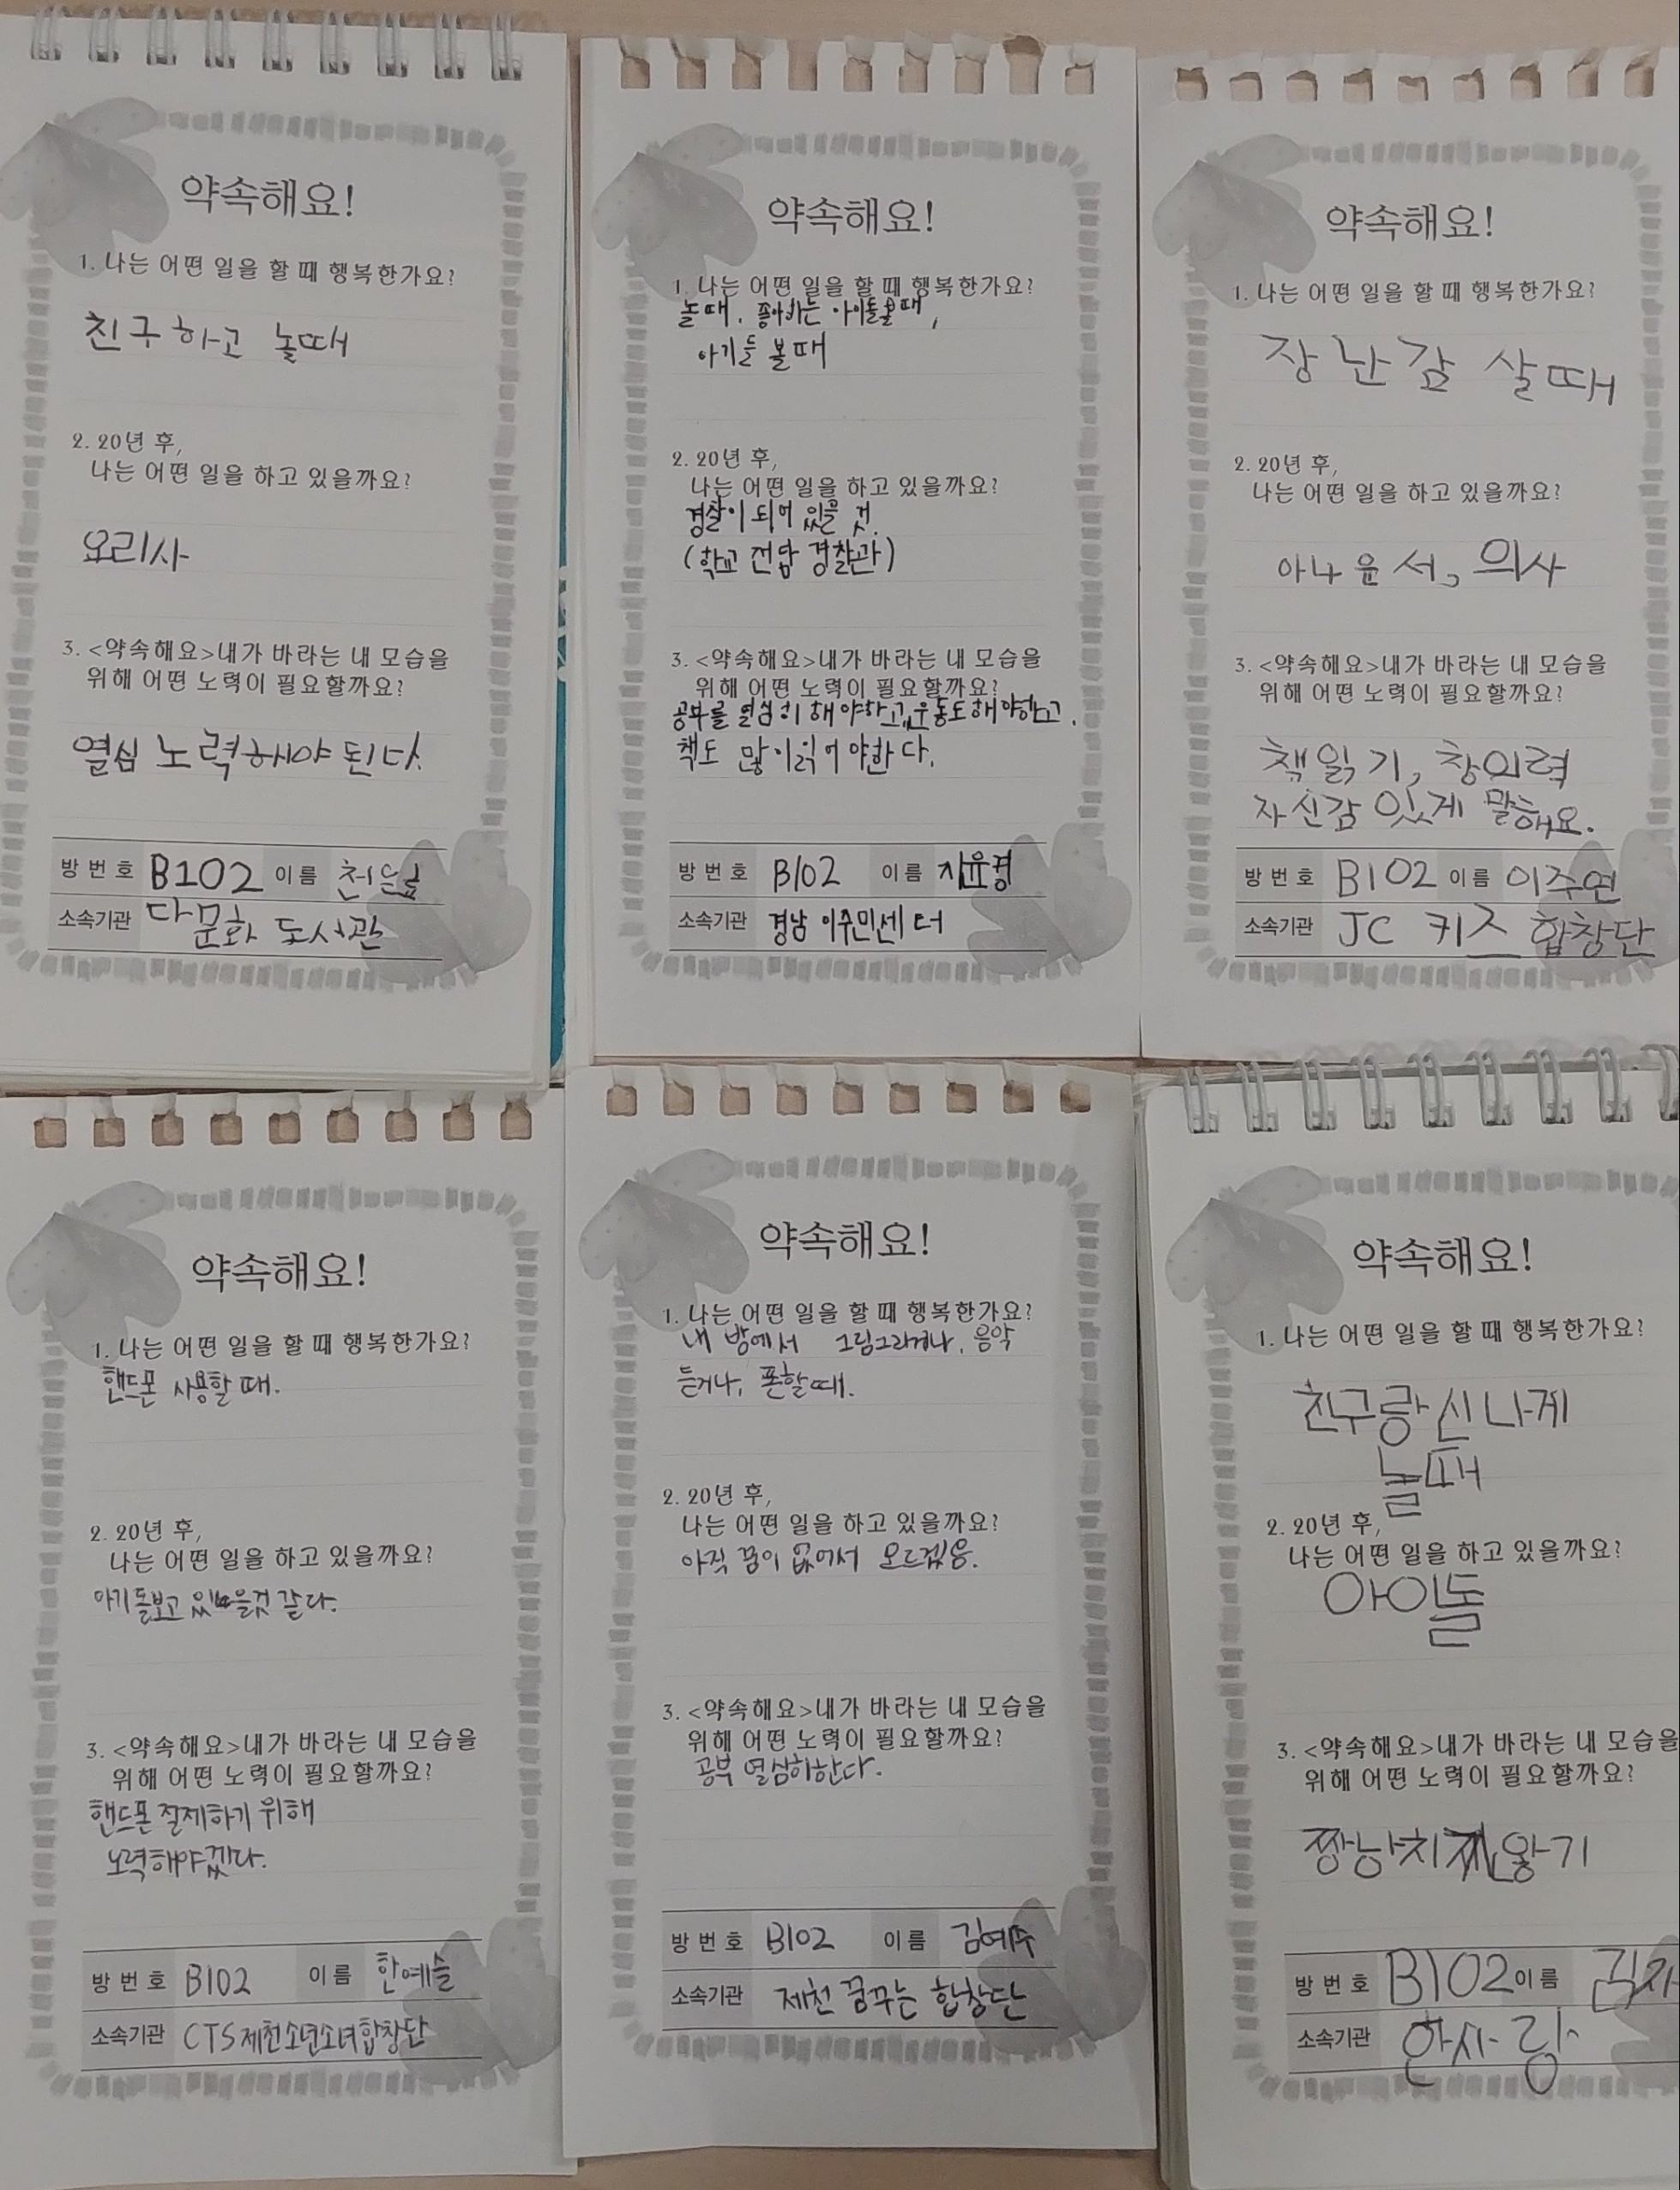 약속해요!
1. 나는 어떤 일을 할 때 행복한가요?
친구하고 놀때
2. 20년 후,
나는 어떤 일을 하고 있을까요?
요리사
3. <약속해요>내가 바라는 내 모습을
위해 어떤 노력이 필요할까요?
열심 노력해야 된다.
방 번 호 B102 이 름
소속기관 다문화 도서관
약속해요!
1. 나는 어떤 일을 할 때 행복한가요?
놀때, 좋아하는 아이돌볼때,
아기들 볼때
2. 20년 후,
나는 어떤 일을 하고 있을까요?
경찰이 되어 있을 것.
(학교 전담 경찰관)
3. <약속해요>내가 바라는 내 모습을
위해 어떤 노력이 필요할까요?
공부를 열심히 해야하고, 운동도해야하고,
책도 많이읽어야한다.
방 번 호 B102 이 름 지윤경
소속기관 경남 이주민센터
약속해요!
1. 나는 어떤 일을 할 때 행복한가요?
장난감 살때
2. 20년 후,
나는 어떤 일을 하고 있을까요?
아나운서, 의사
3. <약속해요>내가 바라는 내 모습을
위해 어떤 노력이 필요할까요?
책읽기, 창의력
자신감 있게 말해요.
방 번 호 B102 이 름 이주연
소속기관 JC 키즈 합창단
약속해요!
1. 나는 어떤 일을 할 때 행복한가요?
핸드폰 사용할 때.
2. 20년 후,
나는 어떤 일을 하고 있을까요?
아기돌보고 있을것 같다.
3. <약속해요>내가 바라는 내 모습을
위해 어떤 노력이 필요할까요?
핸드폰 절제하기 위해
노력해야겠다.
방 번 호 B102 이 름 한예슬
소속기관 CTS제천소년소녀합창단
약속해요!
1. 나는 어떤 일을 할 때 행복한가요?
내 방에서 그림그리거나, 음악
듣거나, 폰할때.
2. 20년 후,
나는 어떤 일을 하고 있을까요?
아직 꿈이 없어서 모르겠음.
3. <약속해요>내가 바라는 내 모습을
위해 어떤 노력이 필요할까요?
공부 열심히한다.
방 번 호 B102 이 름 김예주
소속기관 제천 꿈꾸는 합창단
약속해요!
1. 나는 어떤 일을 할 때 행복한가요?
친구랑 신나게
놀때
2. 20년 후,
나는 어떤 일을 하고 있을까요?
아이돌
3. <약속해요>내가 바라는 내 모습을
위해 어떤 노력이 필요할까요?
방 번 호 B102 이 름
소속기관 한사랑